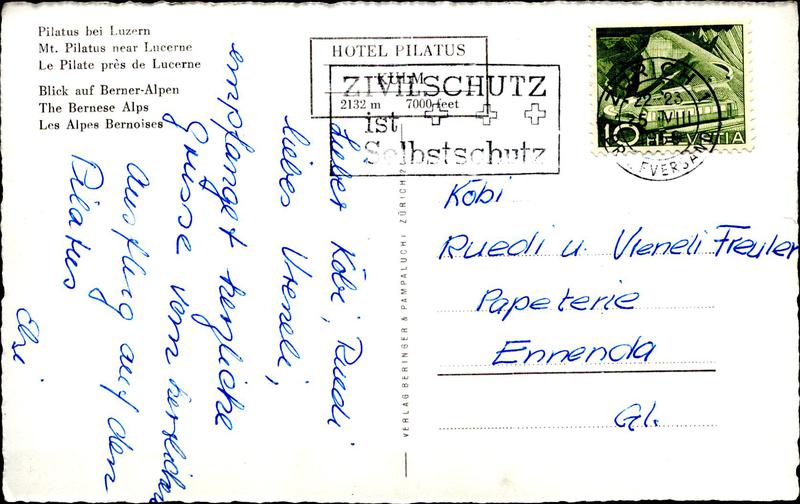 Pilatus bei Luzern
Mt. Pilatus near Lucerne
Le Pilate près de Lucerne
Blick auf Berner-Alpen
The Bernese Alps
Les Alpes Bernoises
HOTEL PILATUS
KULM
2132 m 7000 feet
ZIVILSCHUTZ
ist
Selbstschutz
ZÜRICH 1
22-23
VIII
BRIEFVERSAND
10 HELVETIA
Lieber Köbi, Ruedi
liebes Vreneli,
empfanget herzliche
Grüsse vom herrlichen
Ausflug auf den
Pilatus
VERLAG BERINGER & PAMPALUCHI ZÜRICH 2
Köbi
Ruedi u. Vreneli Freuler
Papeterie
Ennenda
Gl.